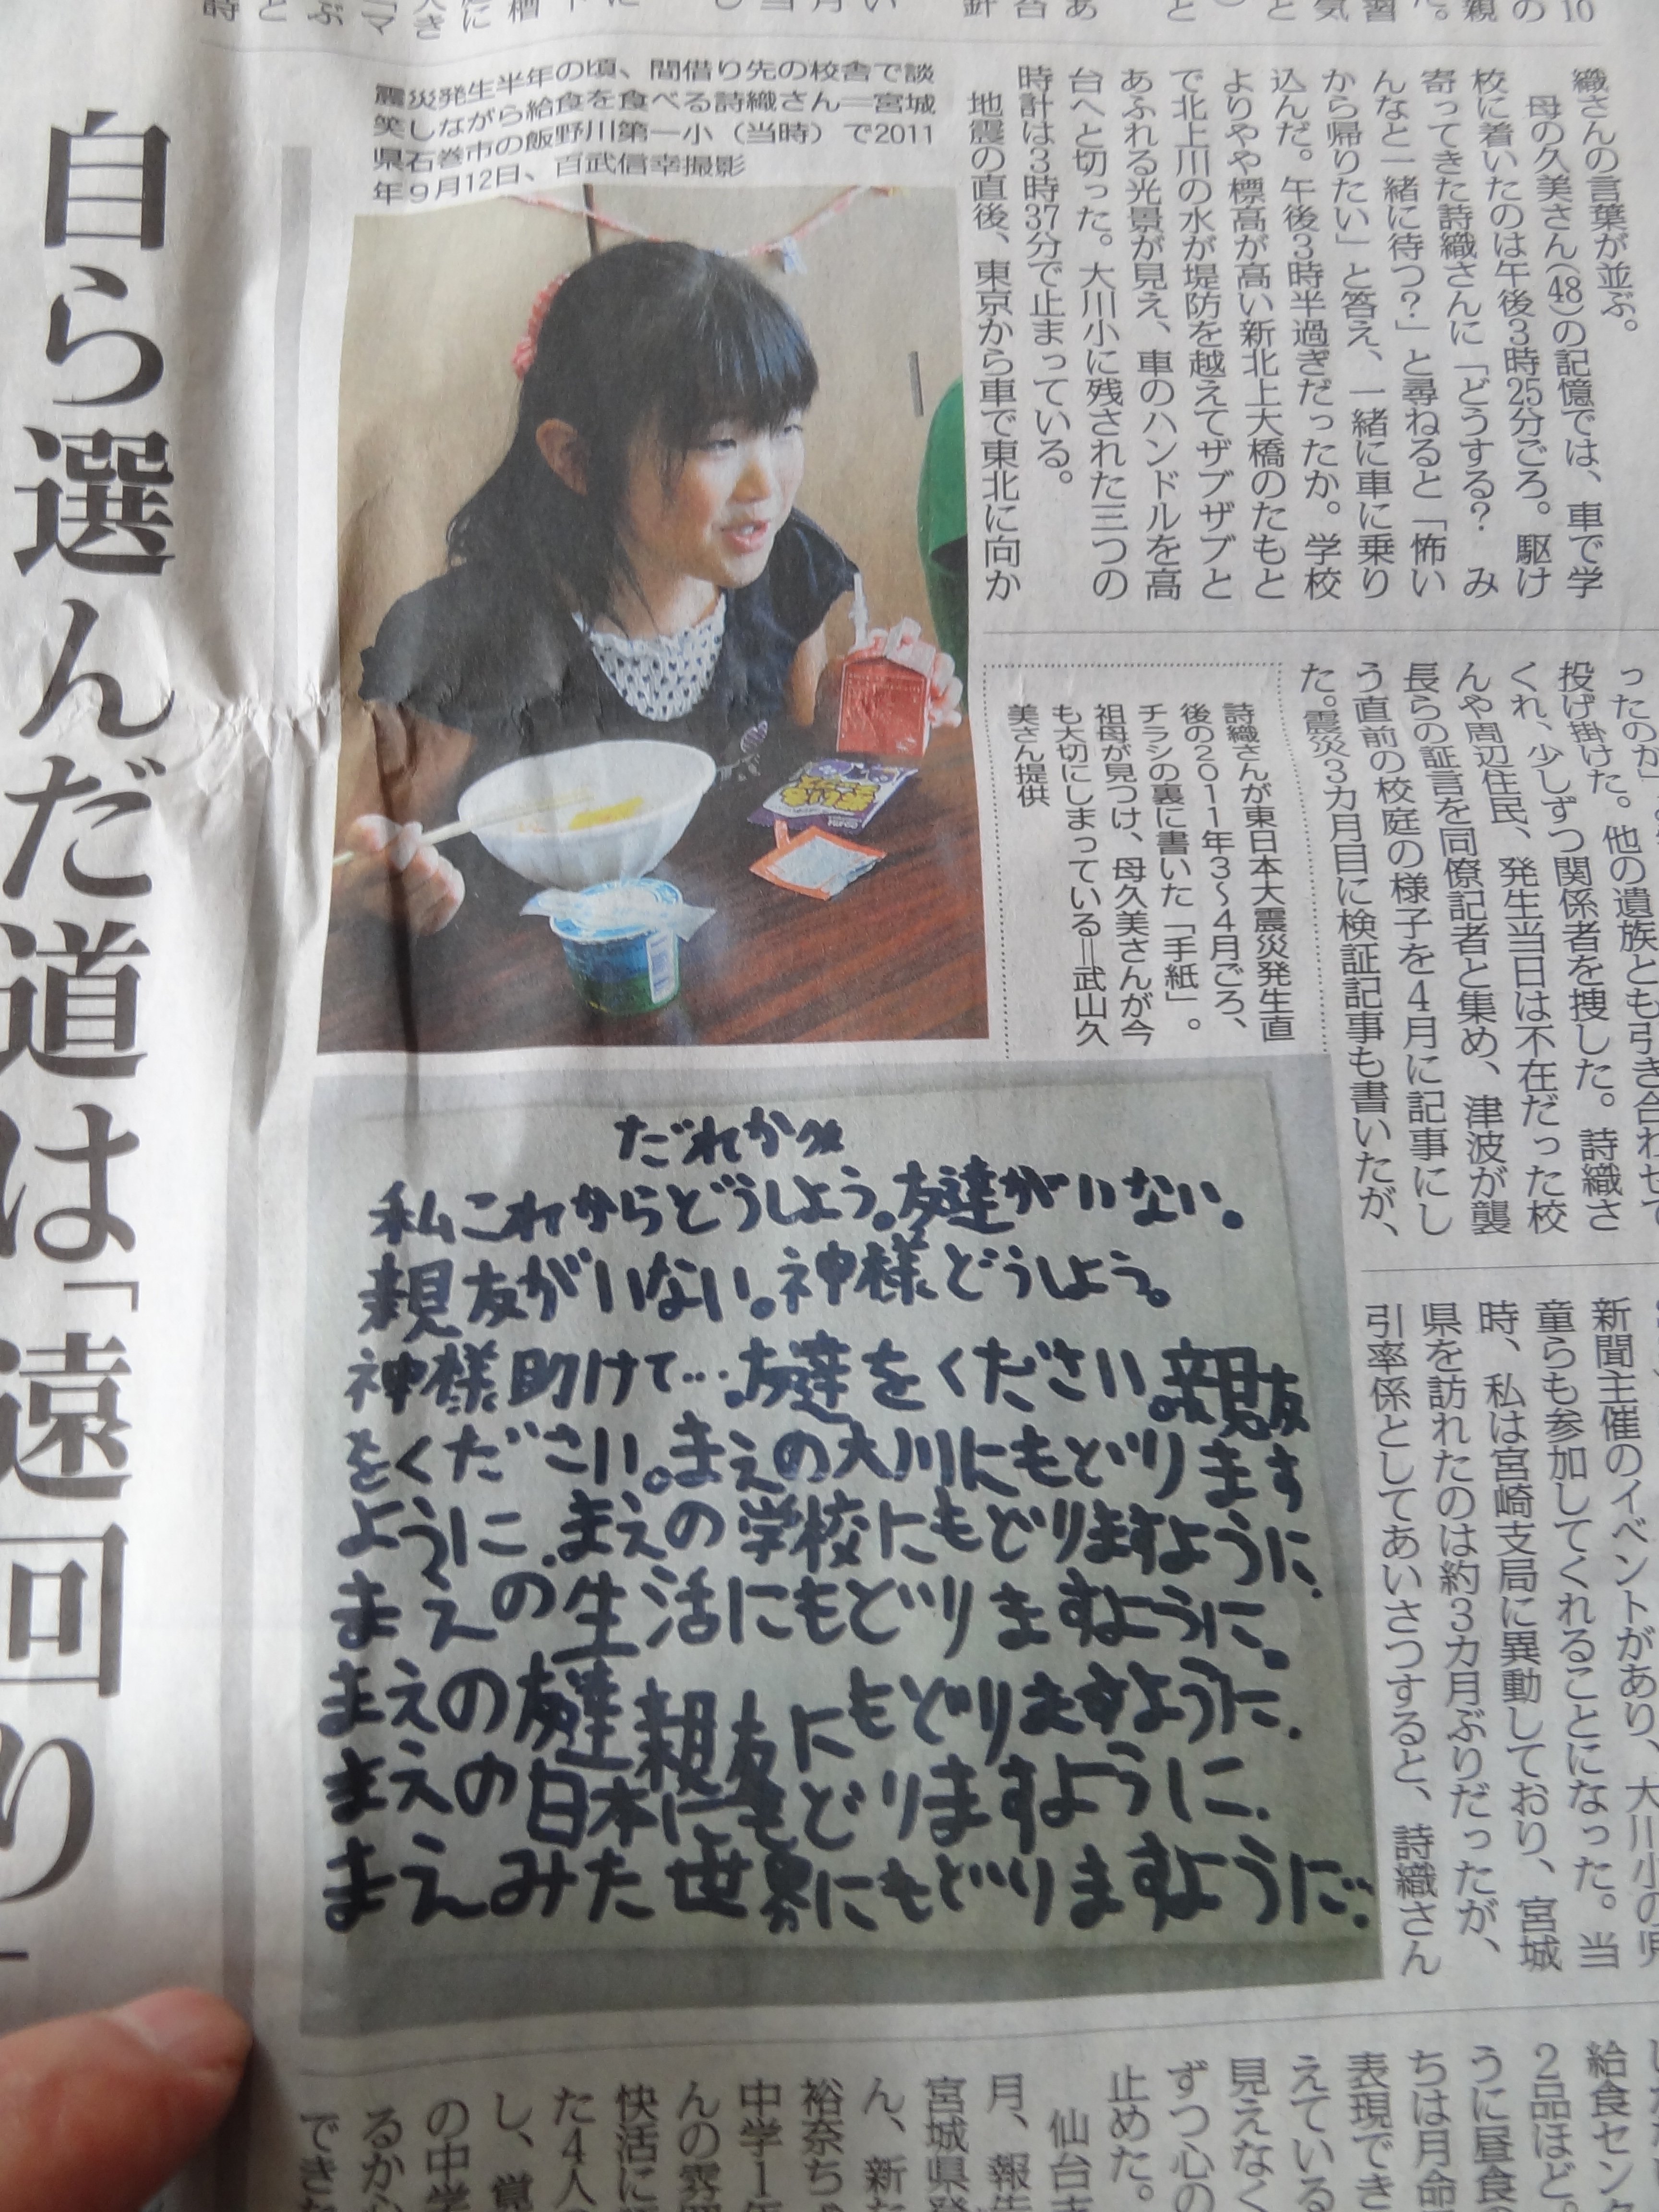 自ら選んだ道は「遠回り
震災発生半年の頃、間借り先の校舎で談
笑しながら給食を食べる詩織さん＝宮城
県石巻市の飯野川第一小（当時）で2011
年9月12日、百武信幸撮影
織さんの言葉が並ぶ。
母の久美さん(48)の記憶では、車で学
校に着いたのは午後3時25分ごろ。駆け
寄ってきた詩織さんに「どうする？　み
んなと一緒に待つ？」と尋ねると「怖い
から帰りたい」と答え、一緒に車に乗り
込んだ。午後3時半過ぎだったか。学校
よりやや標高が高い新北上大橋のたもと
で北上川の水が堤防を越えてザブザブと
あふれる光景が見え、車のハンドルを高
台へと切った。大川小に残された三つの
時計は3時37分で止まっている。
地震の直後、東京から車で東北に向か
ったのか」
投げ掛けた。他の遺族とも引き合わせて
くれ、少しずつ関係者を捜した。詩織さ
んや周辺住民、発生当日は不在だった校
長らの証言を同僚記者と集め、津波が襲
う直前の校庭の様子を4月に記事にし
た。震災3カ月目に検証記事も書いたが、
詩織さんが東日本大震災発生直
後の2011年3〜4月ごろ、
チラシの裏に書いた「手紙」。
祖母が見つけ、母久美さんが今
も大切にしまっている＝武山久
美さん提供
だれか〆
私これからどうしよう。友達がいない。
親友がいない。神様どうしよう。
神様助けて…友達をください。親友
をください。まえの大川にもどります
ように。まえの学校にもどりますように。
まえの生活にもどりますように。
まえの友達親友にもどりますように。
まえの日本にもどりますように。
まえみた世界にもどりますように…
新聞主催のイベントがあり、大川小の児
童らも参加してくれることになった。当
時、私は宮崎支局に異動しており、宮城
県を訪れたのは約3カ月ぶりだったが、
引率係としてあいさつすると、詩織さん
給食セン
2品ほど、
うに昼食
ちは月命
表現でき
えている
見えなく
ずつ心の
止めた。
仙台市
月、報告
宮城県発
ん、新た
裕奈ち
中学1年
んの雰囲
快活に
た4人の
し、覚
の中学
るか心
できた